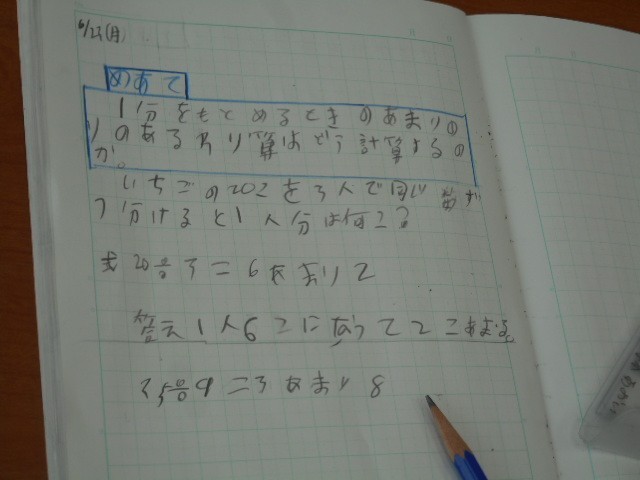 6/23(月)
めあて
1分をもとめるときのあまり
りのあるわり算はどう計算する
か。
いちごの20こを3人で同じ数ず
つ分けると1人分は何こ?
式 20÷3=6あまり2
答え1人6こになって2こあまる。
35÷9=3あまり8